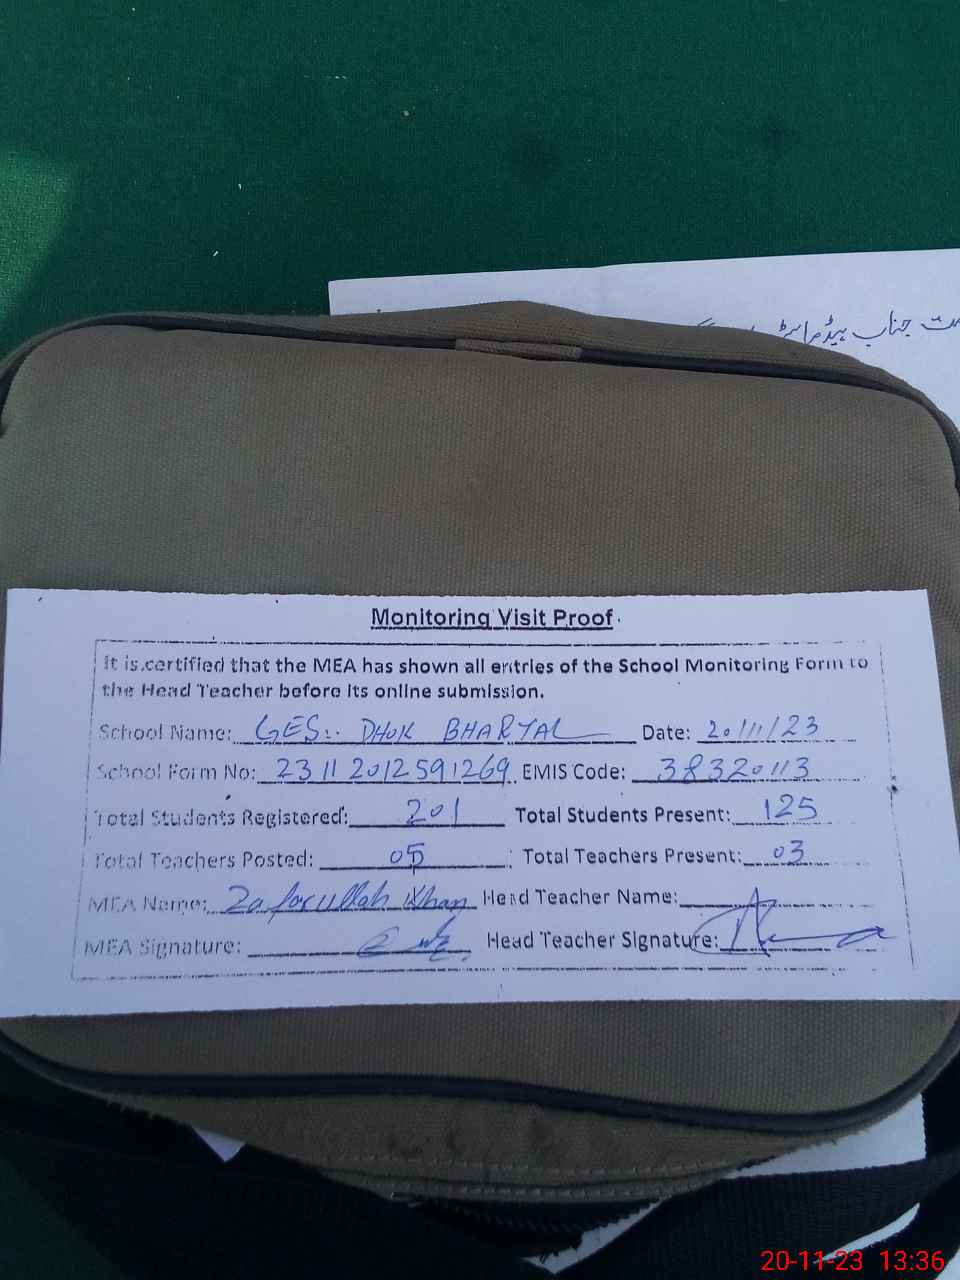 جناب ہیڈماسٹر
Monitoring Visit Proof
It is certified that the MEA has shown all entries of the School Monitoring Form to
the Head Teacher before its online submission.
School Name: GES. DHOK BHARYAL Date: 20/11/23
School Form No: 23112012591269 EMIS Code: 38320113
Total Students Registered: 201 Total Students Present: 125
Total Teachers Posted: 05 Total Teachers Present: 03
MEA Name: Zafarullah Khan Head Teacher Name:
MEA Signature: Head Teacher Signature:
20-11-23 13:36